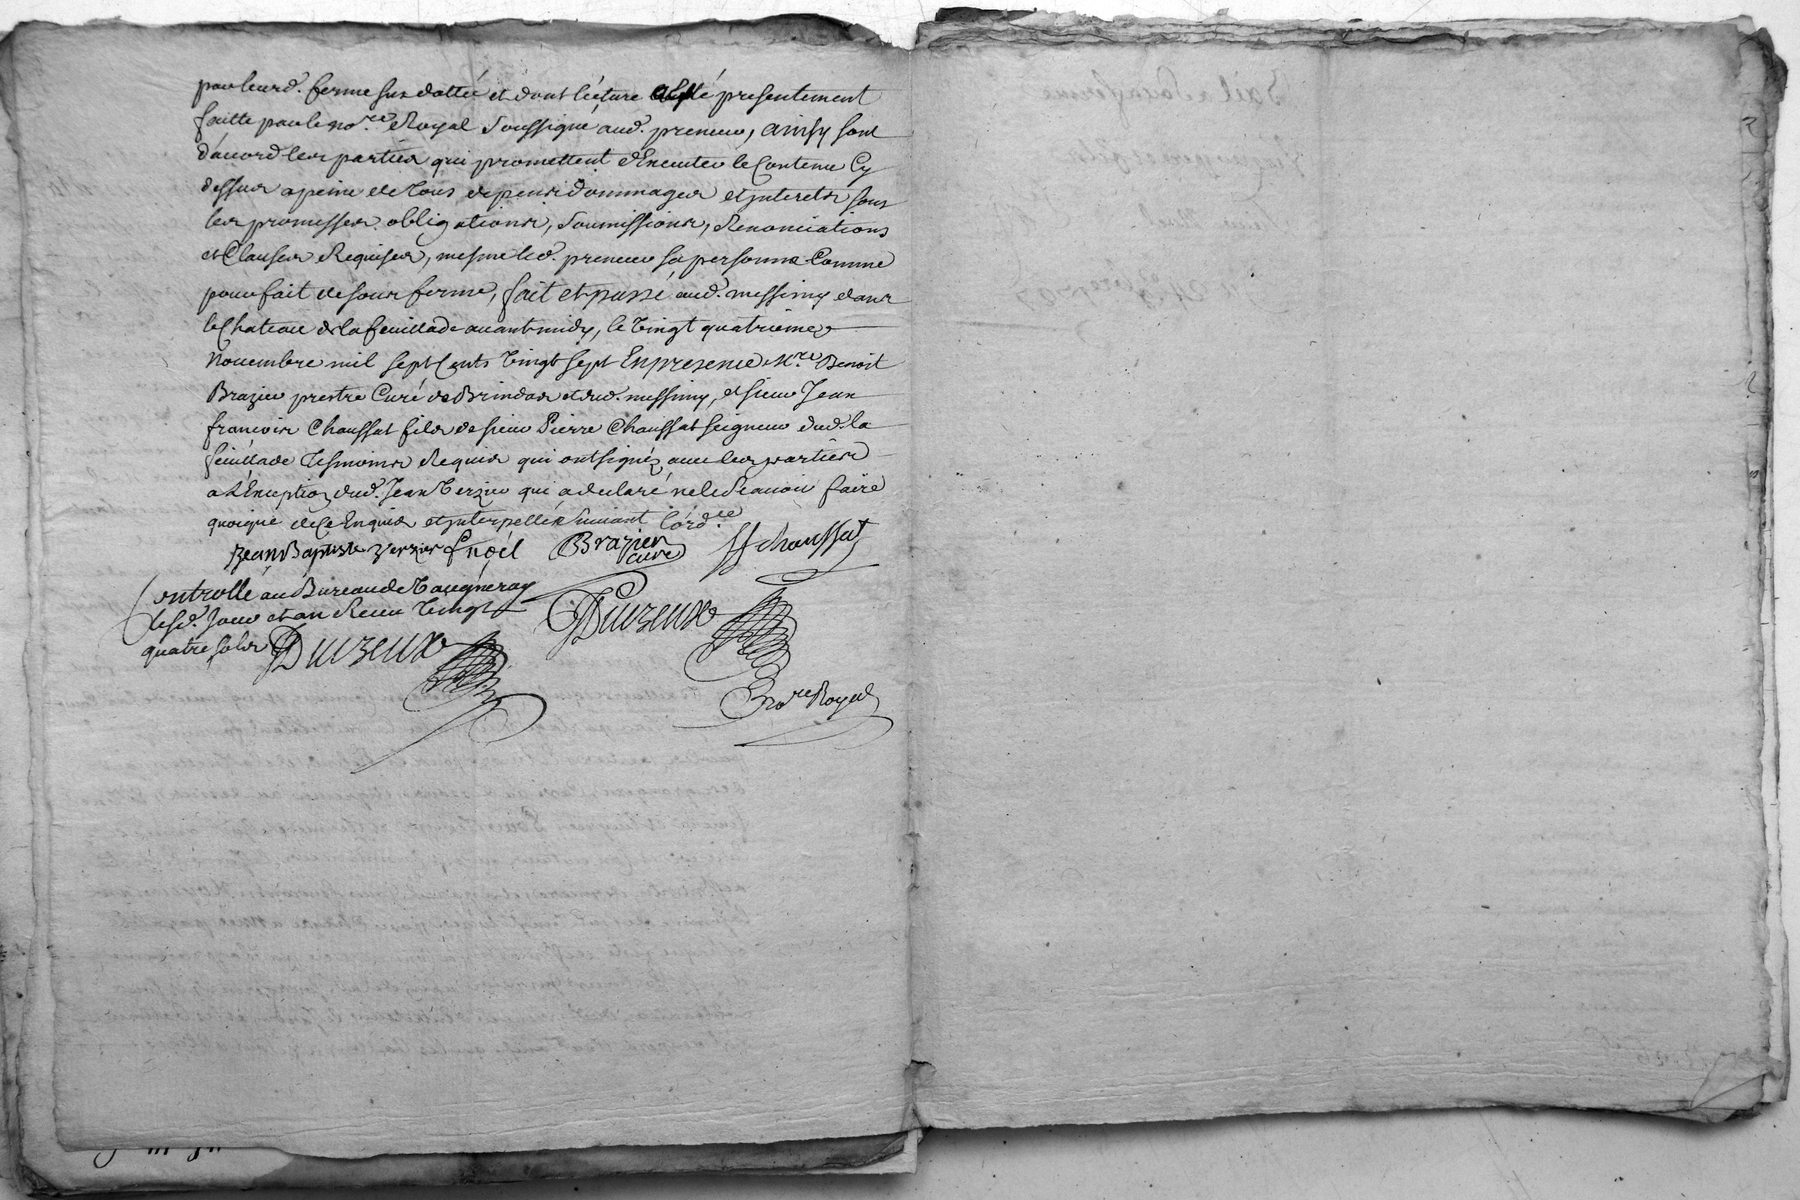 par leurd. ferme sus dattée et dont lecture a esté presentement
faitte par le no.re Royal soussigné aud. preneur, ainsy sont
d'accord les parties qui promettent d'Executer le Contenu Cy
dessus a peine de tous depens dommages et interets sous
les promesses obligations, soumissions, Renonciations
et Clauses Requises, mesme led. preneur sa personne Comme
pour fait de sour ferme, fait et passé aud. messimy dans
le Chateau de la feuillade auant midy, le vingt quatrieme
Nouembre mil sept Cents vingt sept En presence M.re Benoit
Brazier prestre Curé de Brindas et dud. messimy, et sieur Jean
francois Chaussat fils de sieur Pierre Chaussat seigneur dud. la
feuillade tesmoins Requis qui ont signéz auec les parties
a l'Exception dud. Jean Verzier qui a declaré ne le scauoir faire
quoique de ce Enquis et interpellé suiuant l'ord.ce
Jean Baptiste Verzier fnoél Brazier curé JF chaussat
Controllé au Bureau de Vaugneray
lesd. Jour et an Receu vingt
quatre sols Duvzeux Duvzeux
no.re Royal